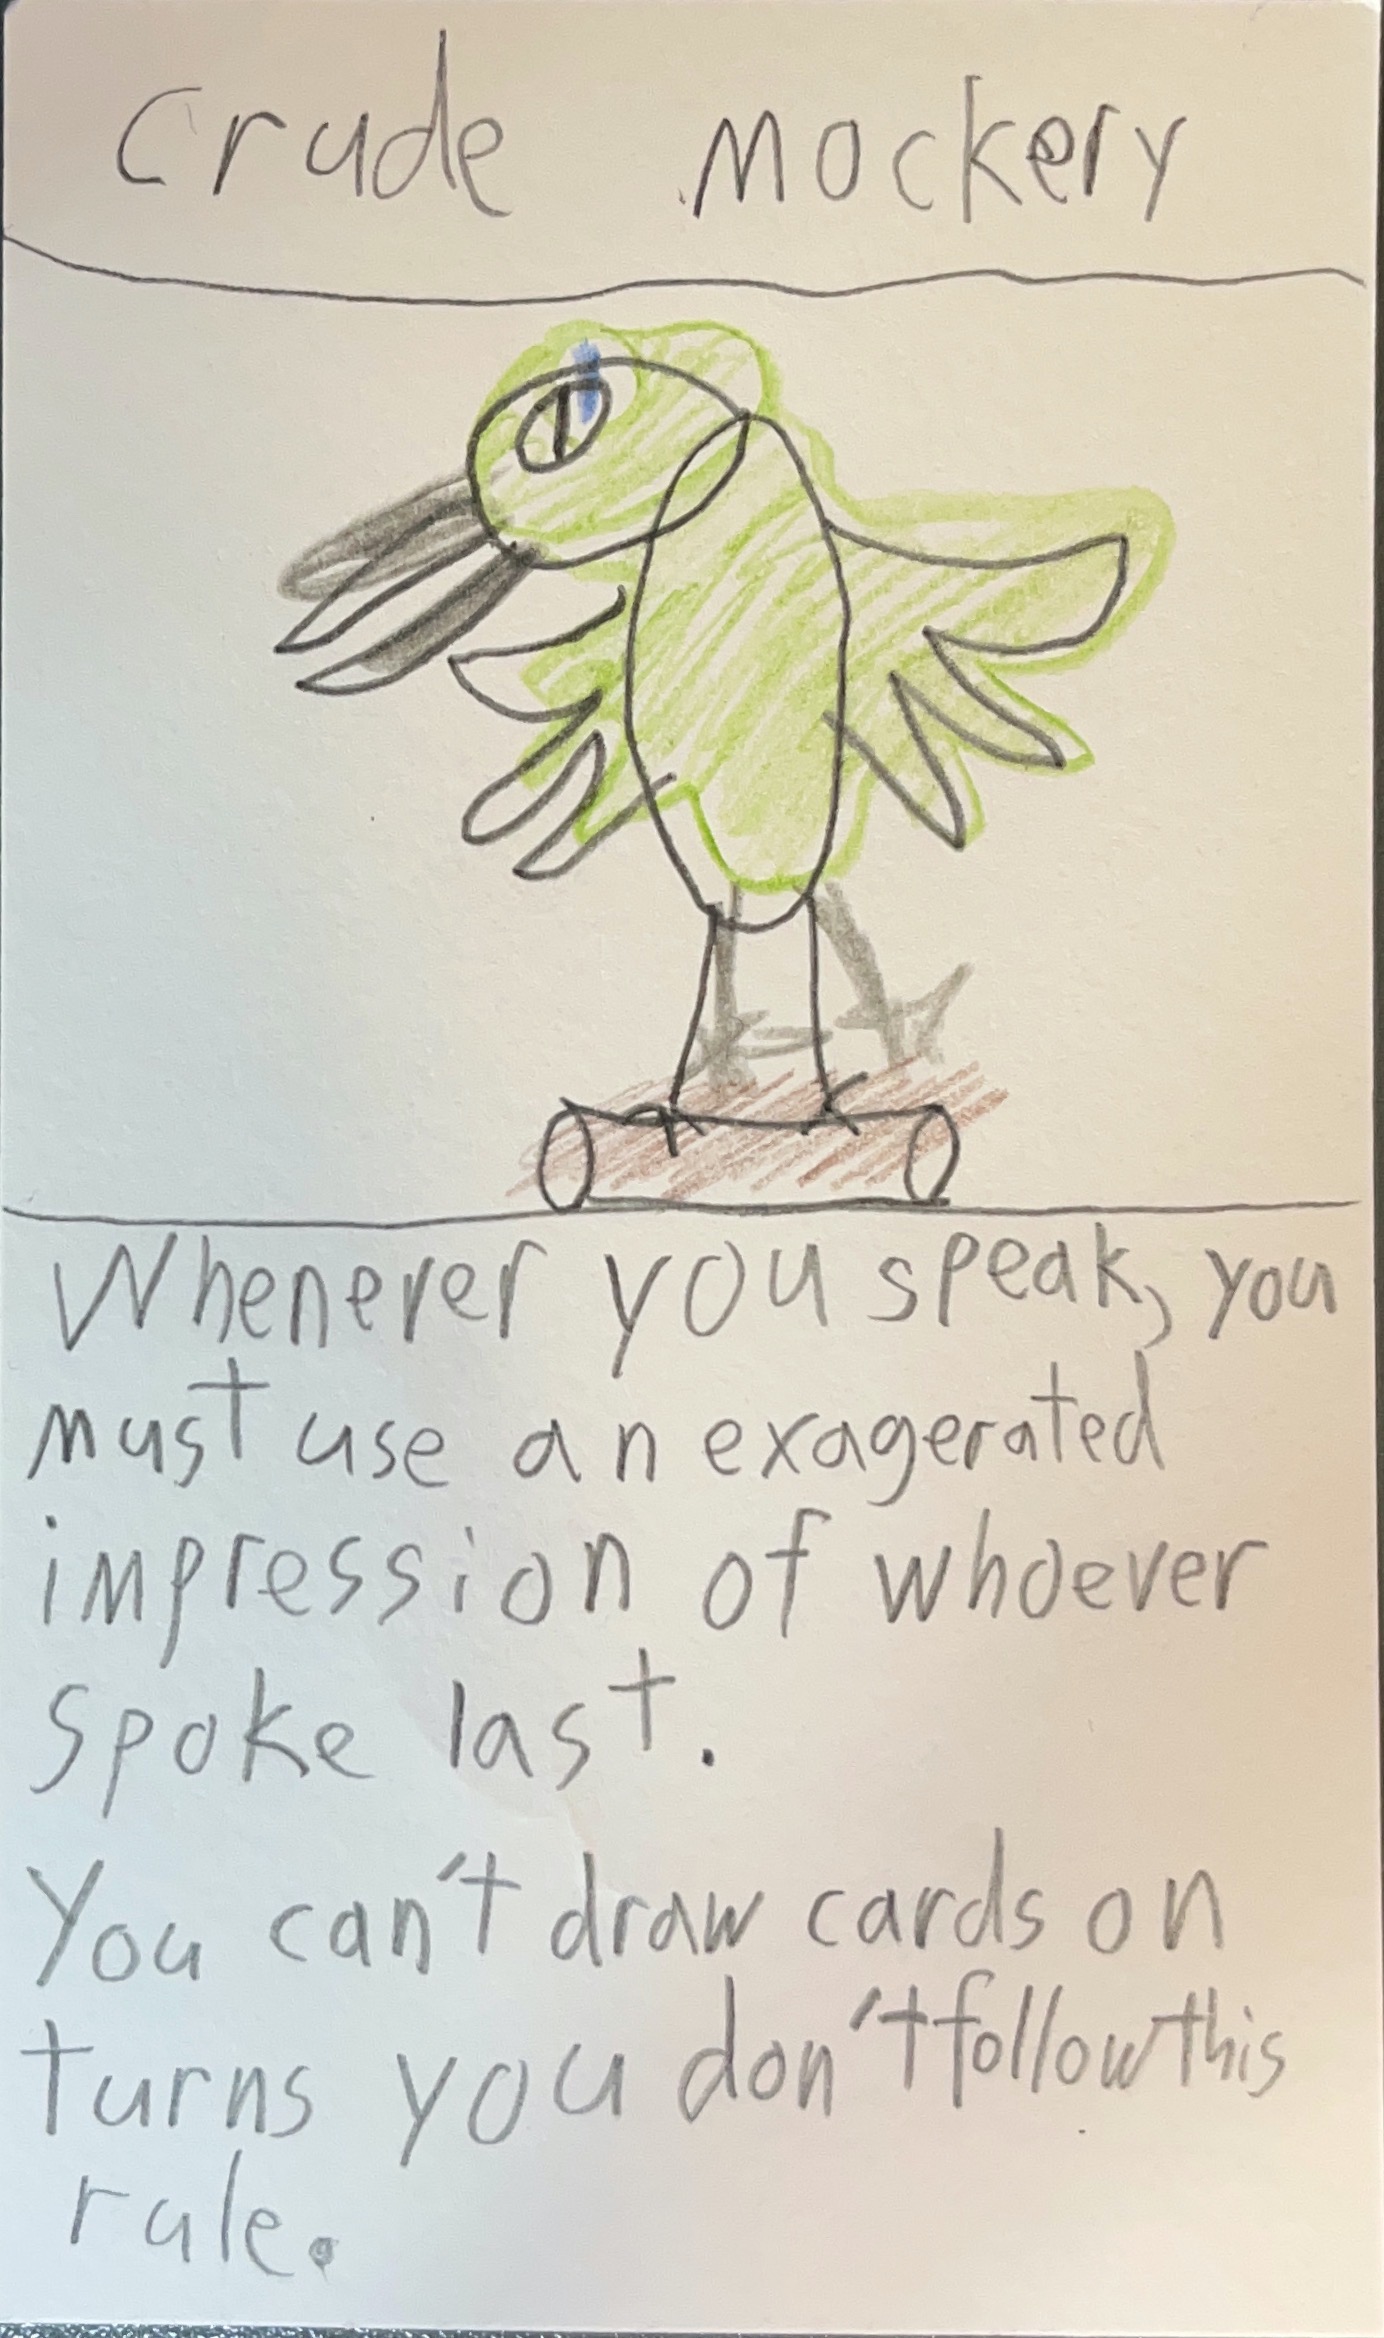 Crude Mockery
Whenever you speak, you
must use an exagerated
impression of whoever
spoke last.
You can't draw cards on
turns you don't follow this
rule.